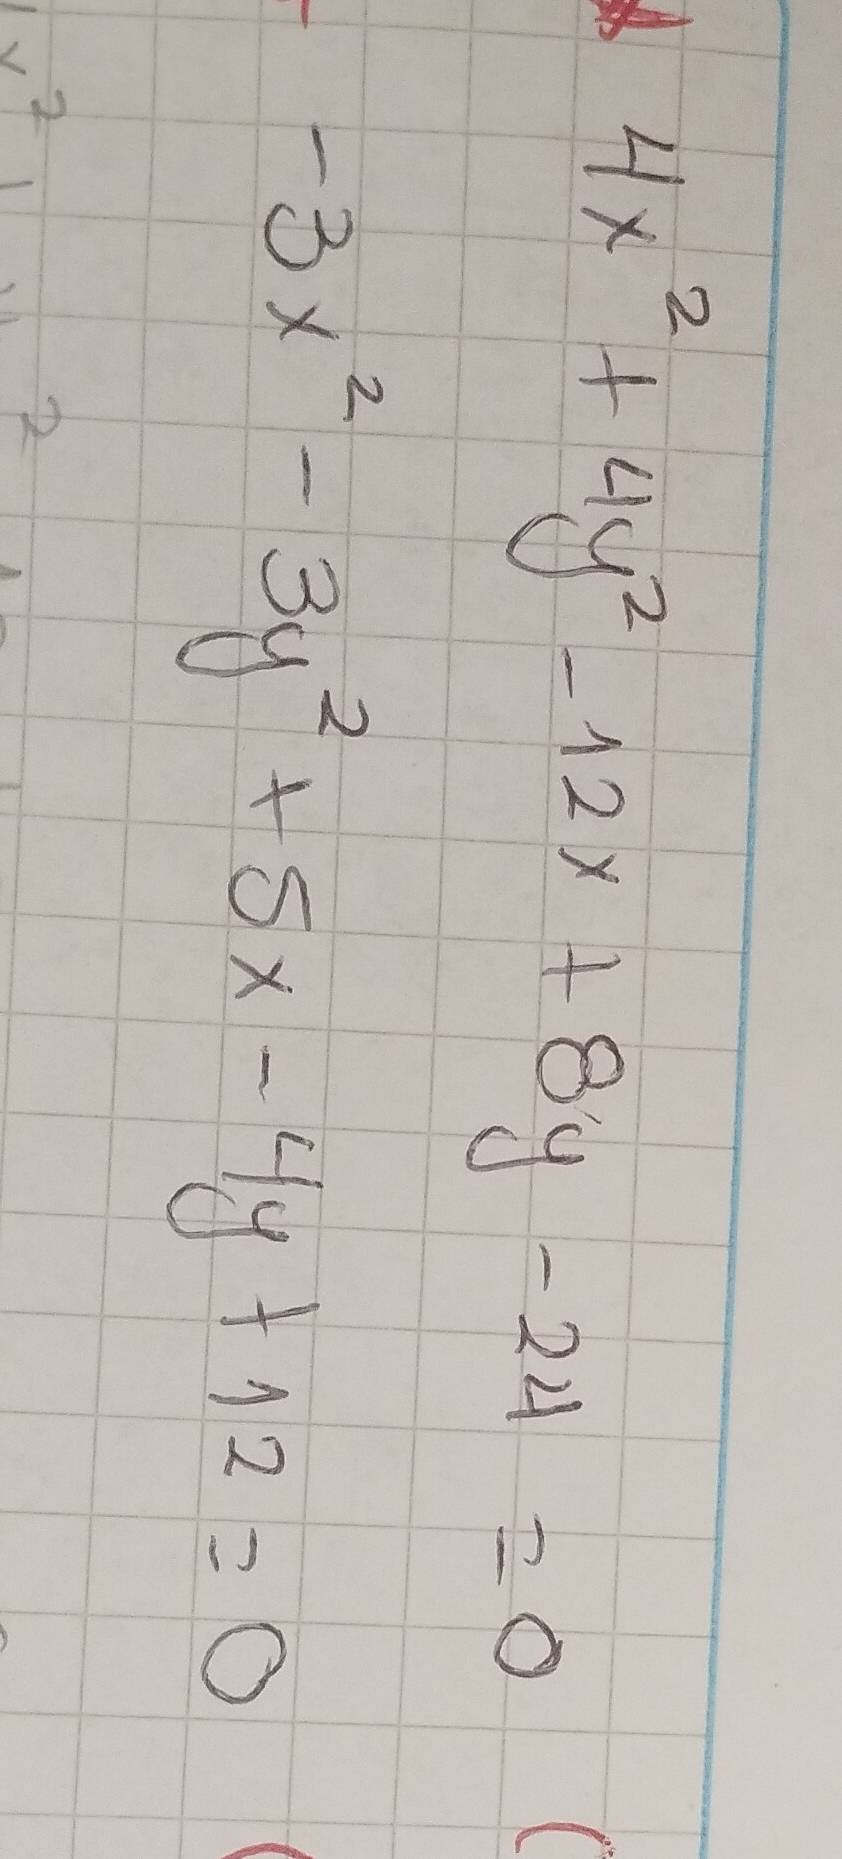 4x² + 4y² - 12x + 8y - 24 = 0
-3x² - 3y² + 5x - 4y + 12 = 0